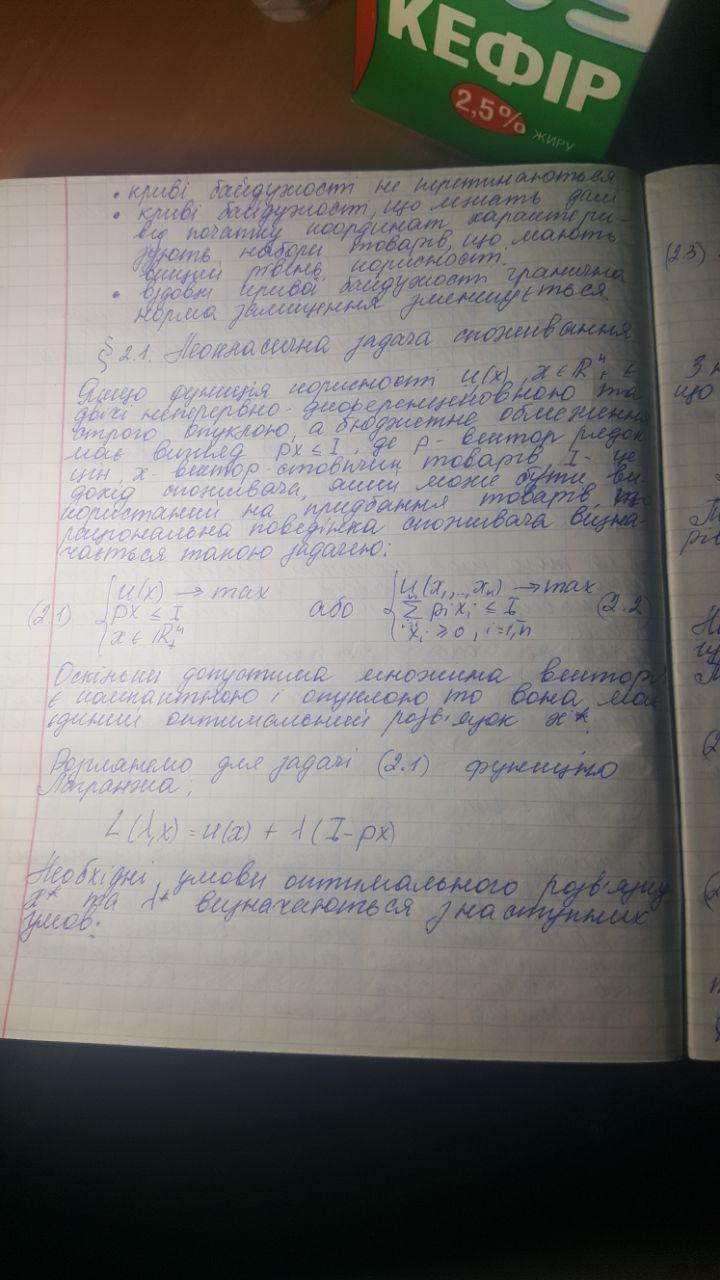 КЕФІР
2,5% ЖИРУ
• криві байдужості не перетинаються
• криві байдужості, що лежать далі
від початку координат характери-
зують набори товарів, що мають
вищий рівень корисності.
• вздовж кривої байдужості гранична
норма заміщення зменшується.
§ 2.1. Неокласична задача споживання
Якщо функція корисності u(x), x ∈ ℝⁿ₊ є
двічі неперервно-диференційовною та
строго опуклою, а бюджетне обмеження
має вигляд px ≤ I, де p - вектор рядок
цін, x - вектор-стовпчик товарів, I - це
дохід споживача, який може бути ви-
користаний на придбання товарів, то
раціональна поведінка споживача визна-
чається такою задачею:
(2.1) { u(x) → max або { u(x₁,...,xₙ) → max (2.2)
px ≤ I ∑ pᵢxᵢ ≤ I
x ∈ ℝⁿ₊ xᵢ ≥ 0, i=1,n
Оскільки допустима множина векторів
є компактною і опуклою то вона має
єдиний оптимальний розв'язок x*.
Розглянемо для задачі (2.1) функцію
Лагранжа,
L(λ,x) = u(x) + λ(I-px)
Необхідні умови оптимального розв'язку
x* та λ* визначаються з наступних
умов:
(2.3)
З
що